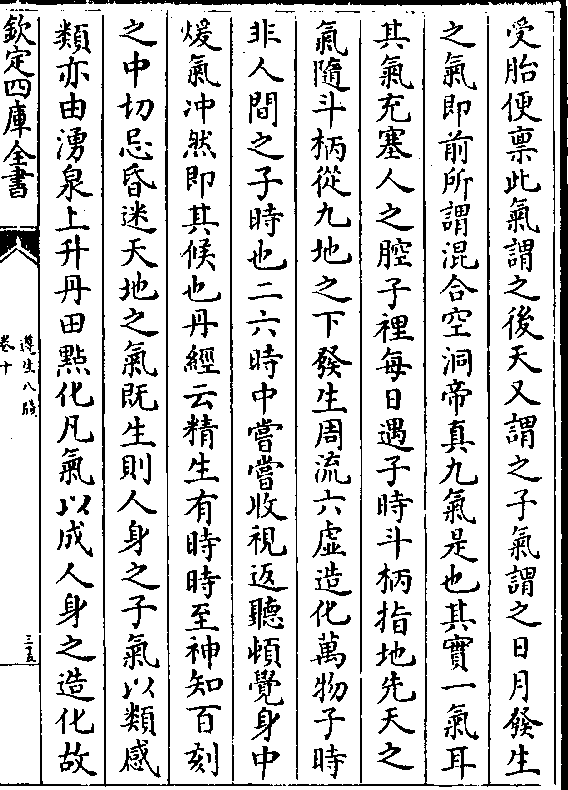 受胎便禀此氣謂之後天又謂之子氣謂之日月發生
之氣即前所謂混合空洞帝真九氣是也其實一氣耳
其氣充塞人之腔子裡每日遇子時斗柄指地先天之
氣隨斗柄從九地之下發生周流六虛造化萬物子時
非人間之子時也二六時中嘗嘗收視返聽頓覺身中
煖氣冲然即其候也丹經云精生有時時至神知百刻
之中切忌昏迷天地之氣既生則人身之子氣以類感
類亦由湧泉上升丹田點化凡氣以成人身之造化故
欽定四庫全書
遵生八牋
卷十
三五